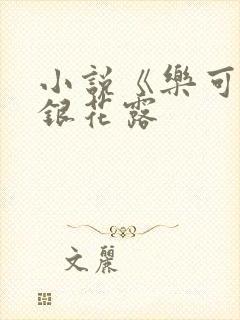 小説《樂可
銀花露
文麗